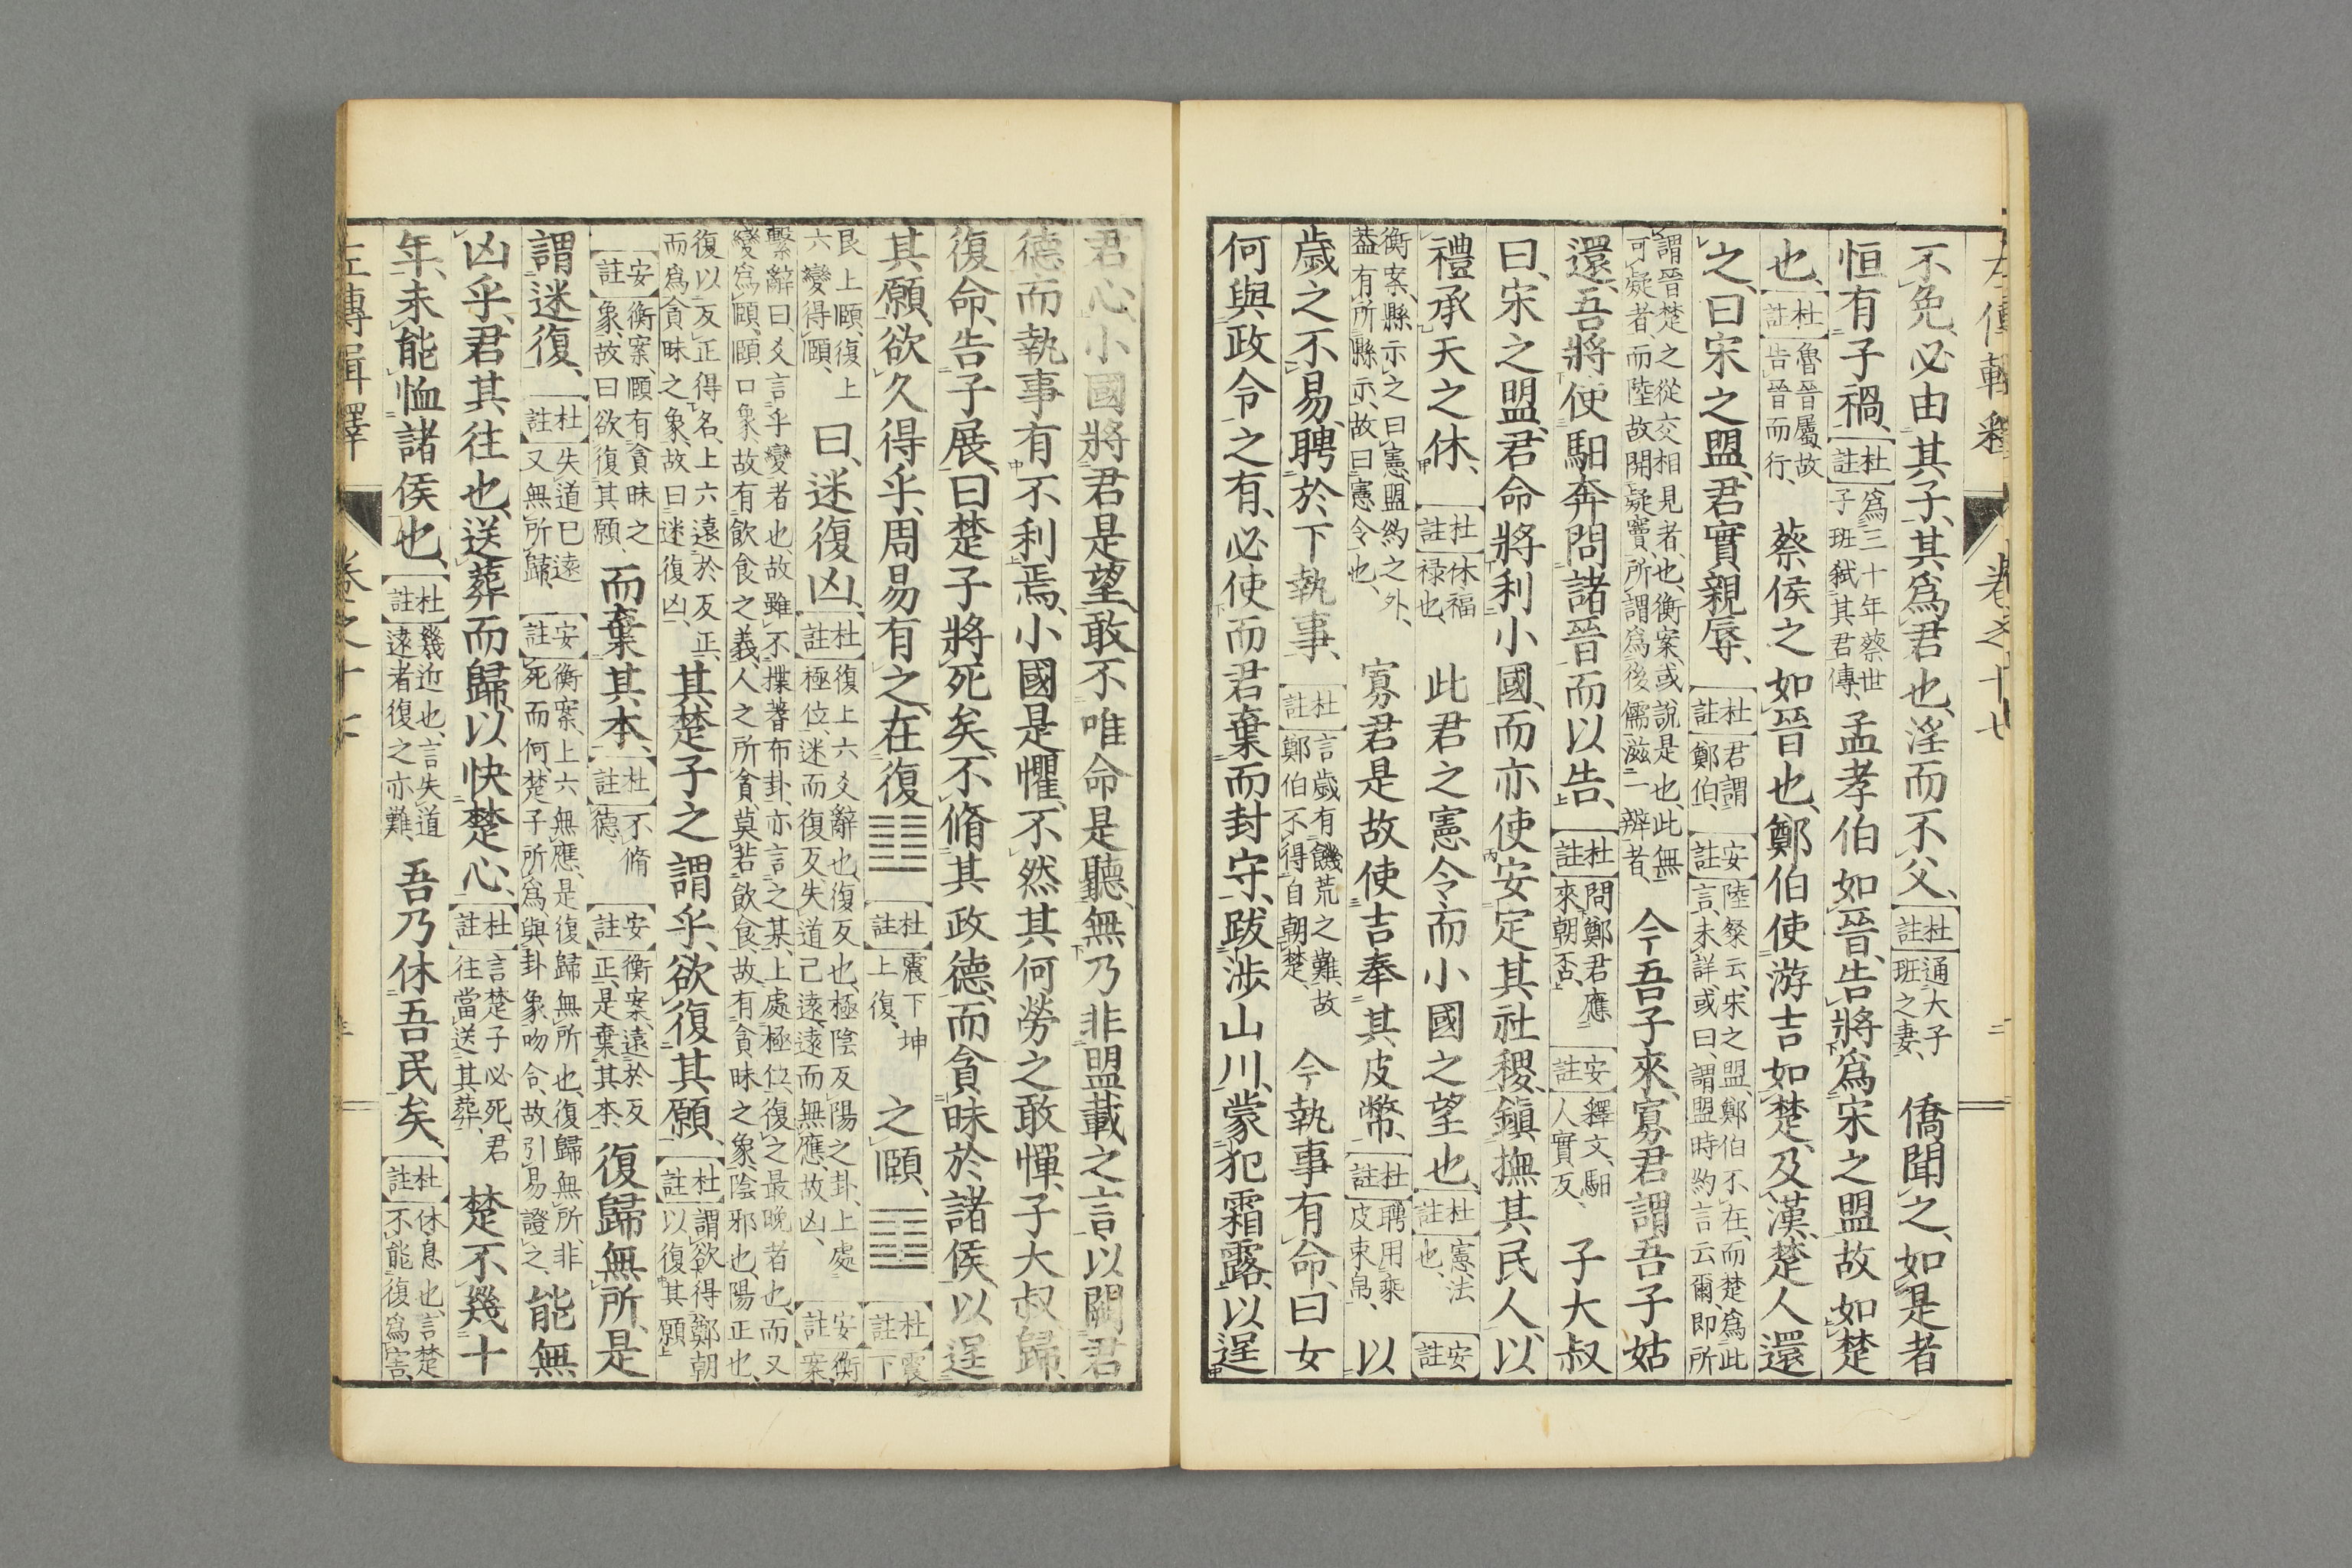 左傳輯釋 卷之十七 二
不免、必由其子、其爲君也、淫而不父、杜註通大子班之妻、僑聞之、如是者
恒有子禍、杜註爲三十年蔡世子班弑其君傳、孟孝伯如晉、告將爲宋之盟故如楚
也、杜註魯晉屬故告晉而行、蔡侯之如晉也、鄭伯使游吉如楚、及漢、楚人還
之、曰宋之盟、君實親辱、杜註君謂鄭伯、安註陸粲云、宋之盟、鄭伯不在、而楚爲此言、未詳、或曰、謂盟時約言云爾、即所
謂晉楚之從交相見者也、衡案、或說是也、此無可疑者、而陸故開疑竇、所謂爲後儒滋一辨者、今吾子來、寡君謂吾子姑
還、吾將使馹奔問諸晉而以告、杜註問鄭君應來朝否、安註釋文、馹人實反、子大叔
曰、宋之盟、君命將利小國、而亦使安定其社稷、鎮撫其民人、以
禮承天之休、杜註休福祿也、此君之憲令而小國之望也、杜註憲法也、安註
衡案、縣示之曰憲、盟約之外、葢有所縣示、故曰憲令也、寡君是故使吉奉其皮幣、杜註聘用乘皮束帛、以
歲之不易、聘於下執事、杜註言歲有饑荒之難、故鄭伯不得自朝楚、今執事有命、曰女
何與政令之有、必使而君棄而封守、跋涉山川、蒙犯霜露、以逞
君心、小國將君是望、敢不唯命是聽、無乃非盟載之言、以闕君
德而執事有不利焉、小國是懼、不然其何勞之敢憚、子大叔歸、
復命、告子展、曰楚子將死矣、不脩其政德、而貪昧於諸侯、以逞
其願、欲久得乎、周易有之、在復䷗杜註震下坤上復、之頤、䷚杜註震下
艮上頤、復上六變得頤、曰、迷復凶、杜註復上六爻辭也、復反也、極陰反陽之卦、上處極位、迷而復反、失道已遠、遠而無應、故凶、安註衡案、
繫辭曰、爻言乎變者也、故雖不揲蓍布卦、亦言之某、上處極位、復之最晚者也、而又變爲頤、頤口象、故有飲食之義、人之所貪、莫若飲食、故有貪昧之象、陰邪也、陽正也、
復以反正得名、上六遠於反正、而爲貪昧之象、故曰迷復凶、其楚子之謂乎、欲復其願、杜註謂欲得鄭朝以復其願
安註衡案、頤有貪昧之象、故曰欲復其願、而棄其本、杜註不脩德、安註衡案、遠於反正、是棄其本、復歸無所、是
謂迷復、杜註失道已遠又無所歸、安註衡案、上六無應、是復歸無所也、復歸無所、非死而何、楚子所爲、與卦象吻合、故引易證之、能無
凶乎、君其往也、送葬而歸、以快楚心、杜註言楚子必死、君往當送其葬、楚不幾十
年、未能恤諸侯也、杜註幾近也、言失道遠者復之亦難、吾乃休吾民矣、杜註休、息也、言楚不能復爲害、
左傳輯釋 卷之十七